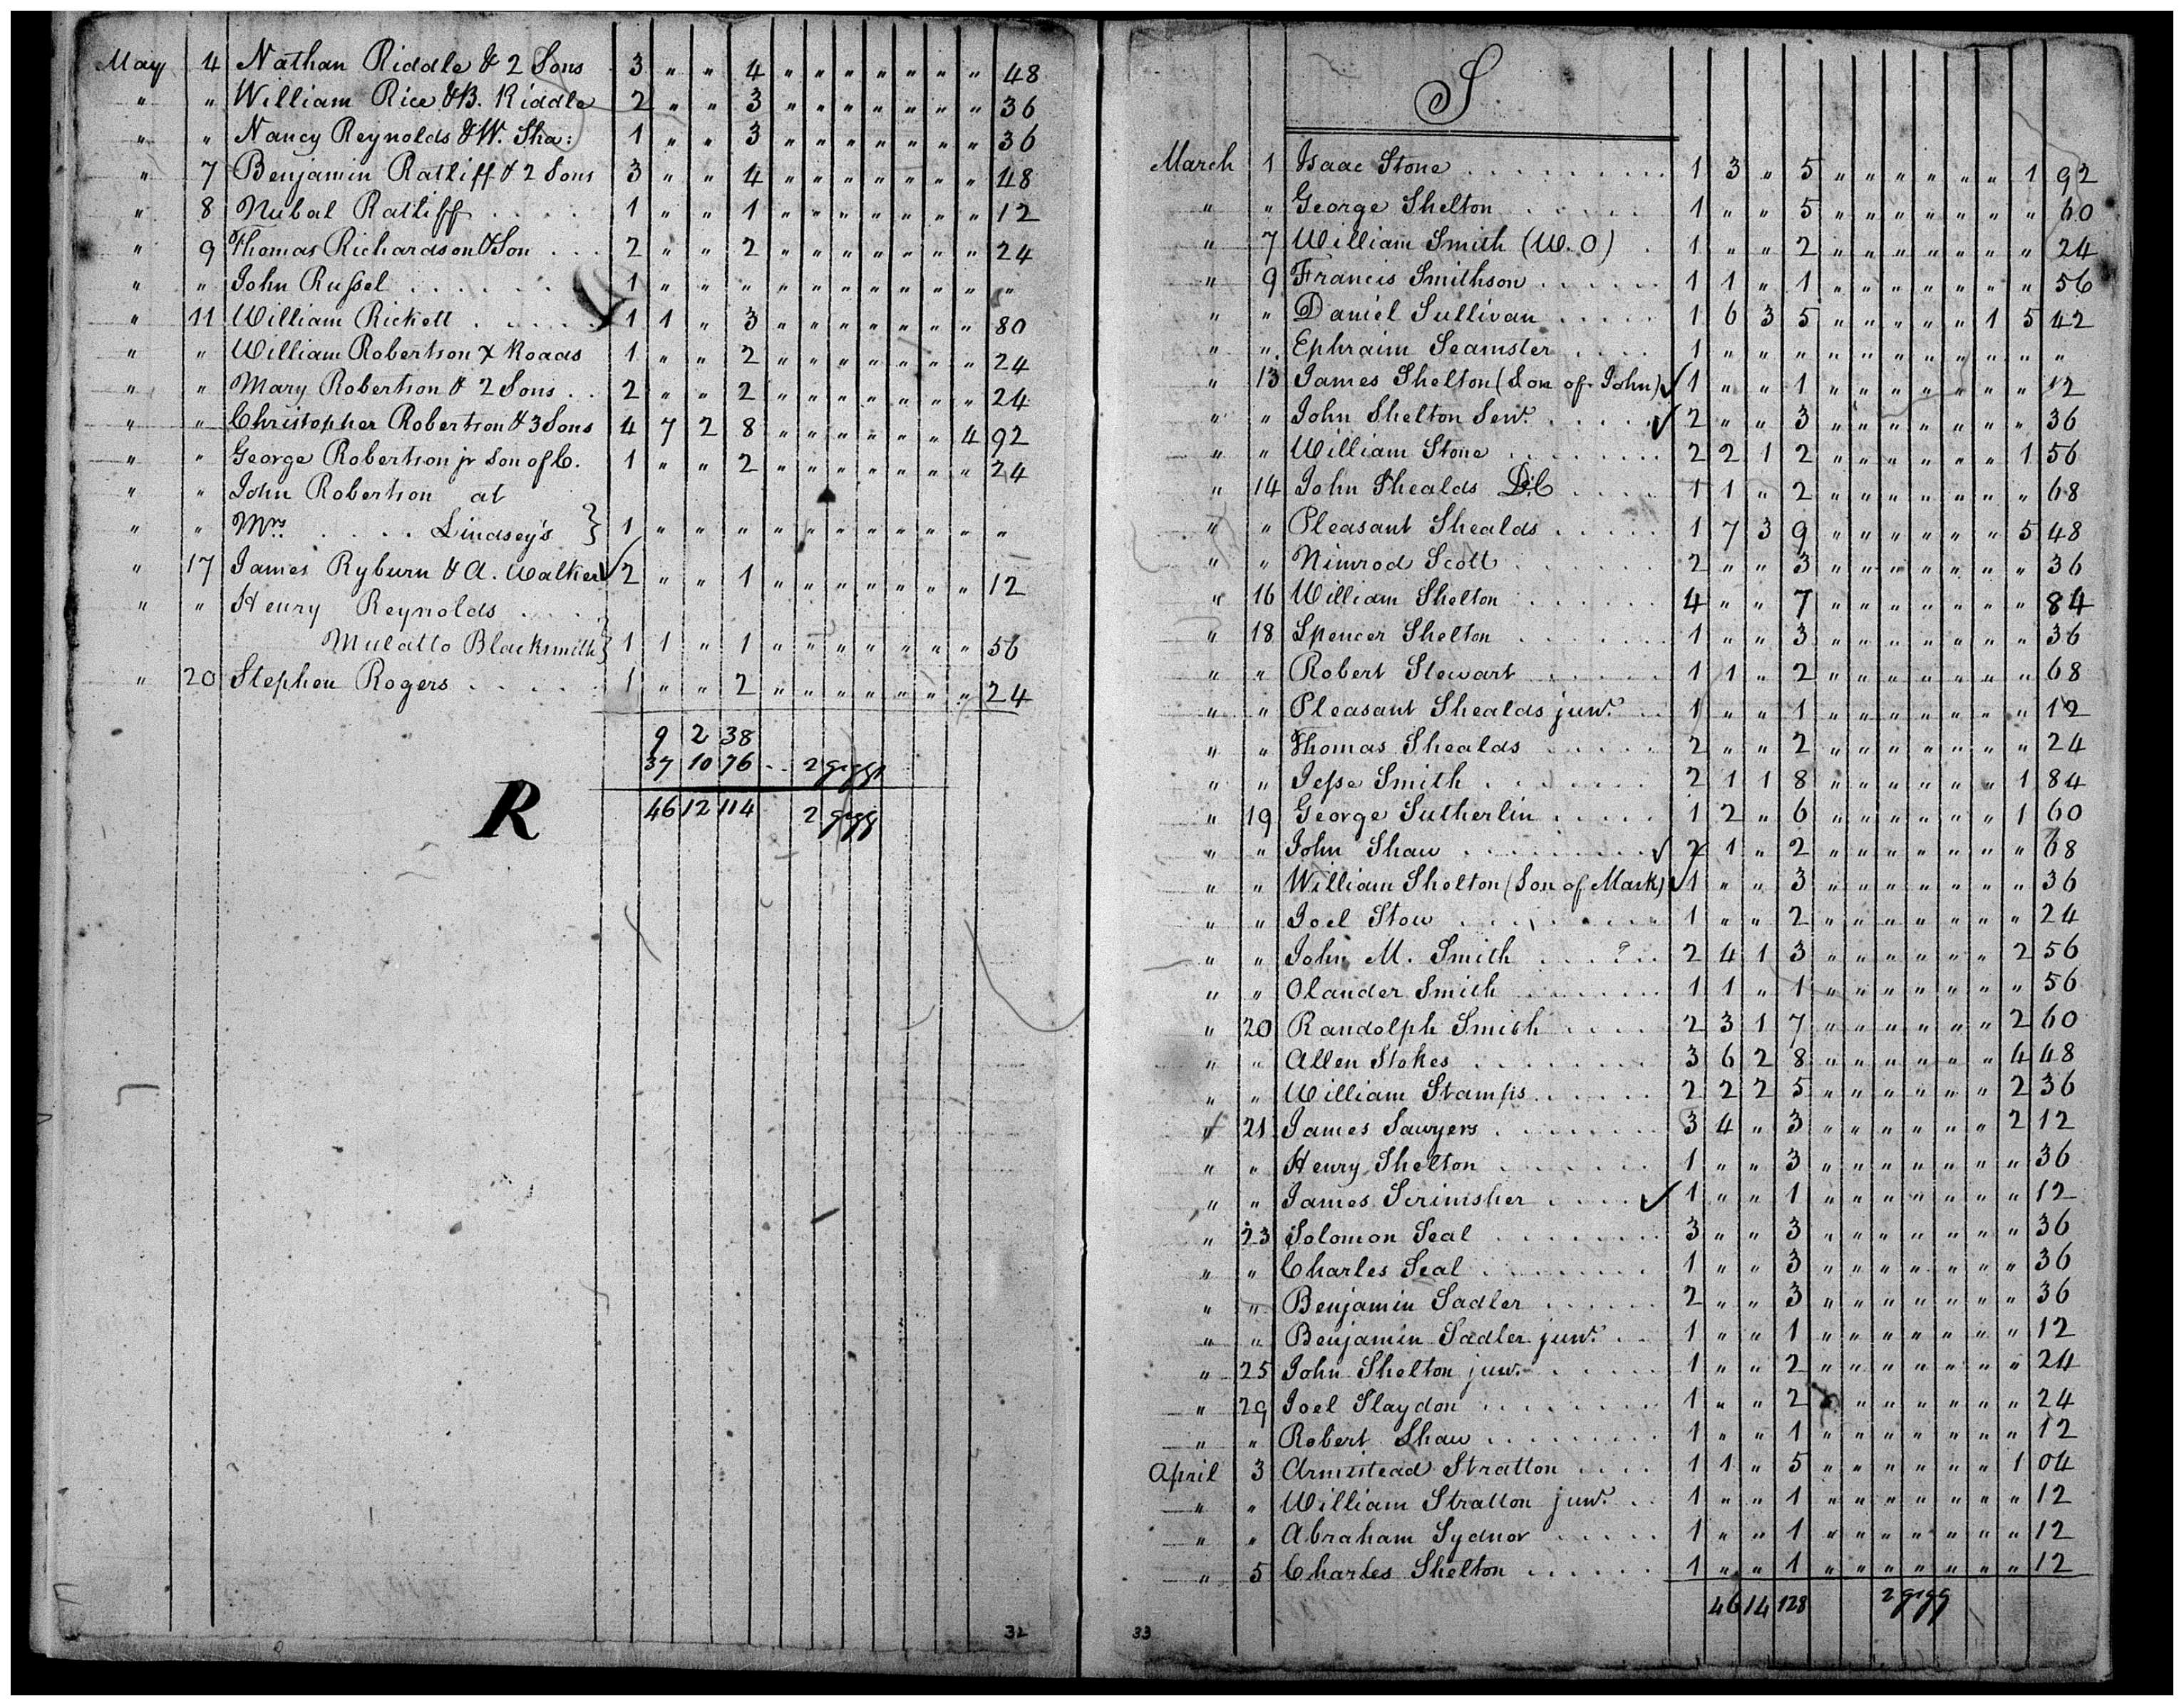 May 4 Nathan Riddle & 2 Sons 3 " " 4 " " " " " " " 48
" " William Rice & B. Riddle 2 " " 3 " " " " " " " 36
" " Nancy Reynolds & W. Sha: 1 " " 3 " " " " " " " 36
" 7 Benjamin Ratliff & 2 Sons 3 " " 4 " " " " " " " 48
" 8 Nubal Ratliff . . . . 1 " " 1 " " " " " " " 12
" 9 Thomas Richardson & Son . . . 2 " " 2 " " " " " " " 24
" " John Russel . . . . . . 1 " " " " " " " " " " "
" 11 William Rickett . . . . . 1 1 " 3 " " " " " " " 80
" " William Robertson X Roads 1 " " 2 " " " " " " " 24
" " Mary Robertson & 2 Sons . . 2 " " 2 " " " " " " " 24
" " Christopher Robertson & 3 Sons 4 7 2 8 " " " " " " 4 92
" " George Robertson jr Son of C. 1 " " 2 " " " " " " " 24
" " John Robertson at
" " Mrs. . . . . Lindsey's } 1 " " " " " " " " " " "
" 17 James Ryburn & A. Walker ✓ 2 " " 1 " " " " " " " 12
" " Henry Reynolds . . . .
Mulatto Blacksmith } 1 1 " 1 " " " " " " " 56
" 20 Stephen Rogers . . . . . 1 " " 2 " " " " " " " 24
9 2 38
37 10 76 . . 2 gigg
R
46 12 114 2 gigg
32
S
March 1 Isaac Stone . . . . . . . . . 1 3 " 5 " " " " " " 1 92
" " George Shelton . . . . . 1 " " 5 " " " " " " " 60
" 7 William Smith (W. O) . 1 " " 2 " " " " " " " 24
" 9 Francis Smithson . . . . . . 1 1 " 1 " " " " " " " 56
" " Daniel Sullivan . . . . . 1 6 3 5 " " " " " 1 5 42
" " Ephraim Seamster . . . . 1 " " " " " " " " " " "
" 13 James Shelton (Son of John) ✓ 1 " " 1 " " " " " " " 12
" " John Shelton Senr. . . . . . ✓ 2 " " 3 " " " " " " " 36
" " William Stone . . . . . . . . 2 2 1 2 " " " " " " 1 56
" 14 John Shealds D.C . . . . 1 1 " 2 " " " " " " " 68
" " Pleasant Shealds . . . . . 1 7 3 9 " " " " " " 5 48
" " Nimrod Scott . . . . . . 2 " " 3 " " " " " " " 36
" 16 William Shelton . . . . . . 4 " " 7 " " " " " " " 84
" 18 Spencer Shelton . . . . . . 1 " " 3 " " " " " " " 36
" " Robert Stewart . . . . . 1 1 " 2 " " " " " " " 68
" " Pleasant Shealds junr. . . 1 " " 1 " " " " " " " 12
" " Thomas Shealds . . . . . 2 " " 2 " " " " " " " 24
" " Jesse Smith . . . . . . . 2 1 1 8 " " " " " " 1 84
" 19 George Sutherlin . . . . . 1 2 " 6 " " " " " " 1 60
" " John Shaw . . . . . . . . ✓ 2 1 " 2 " " " " " " " 68
" " William Shelton (Son of Mark) ✓ 1 " " 3 " " " " " " " 36
" " Joel Stow . . . . . . . . 1 " " 2 " " " " " " " 24
" " John M. Smith . . . ? . . 2 4 1 3 " " " " " " 2 56
" " Olander Smith . . . . . . 1 1 " 1 " " " " " " " 56
" 20 Randolph Smith . . . . 2 3 1 7 " " " " " " 2 60
" " Allen Stokes . . . . . . . . 3 6 2 8 " " " " " " 4 48
" " William Stamps . . . . . . 2 2 2 5 " " " " " " 2 36
" 21 James Sawyers . . . . . . . . 3 4 " 3 " " " " " " 2 12
" " Henry Shelton . . . . . . 1 " " 3 " " " " " " " 36
" " James Scrimsher . . . . ✓ 1 " " 1 " " " " " " " 12
" 23 Solomon Seal . . . . . . . 3 " " 3 " " " " " " " 36
" " Charles Seal . . . . . . . 1 " " 3 " " " " " " " 36
" " Benjamin Sadler . . . . . . 2 " " 3 " " " " " " " 36
" " Benjamin Sadler junr. . . 1 " " 1 " " " " " " " 12
" 25 John Shelton junr. . . . . . 1 " " 2 " " " " " " " 24
" 29 Joel Slaydon . . . . . . . . 1 " " 2 " " " " " " " 24
" " Robert Shaw . . . . . . . . . 1 " " 1 " " " " " " " 12
April 3 Armistead Stratton . . . . 1 1 " 5 " " " " " " 1 04
" " William Stratton junr. . . 1 " " 1 " " " " " " " 12
" " Abraham Sydnor . . . . . 1 " " 1 " " " " " " " 12
" 5 Charles Shelton . . . . . . 1 " " 1 " " " " " " " 12
46 14 128 2 gigg
33